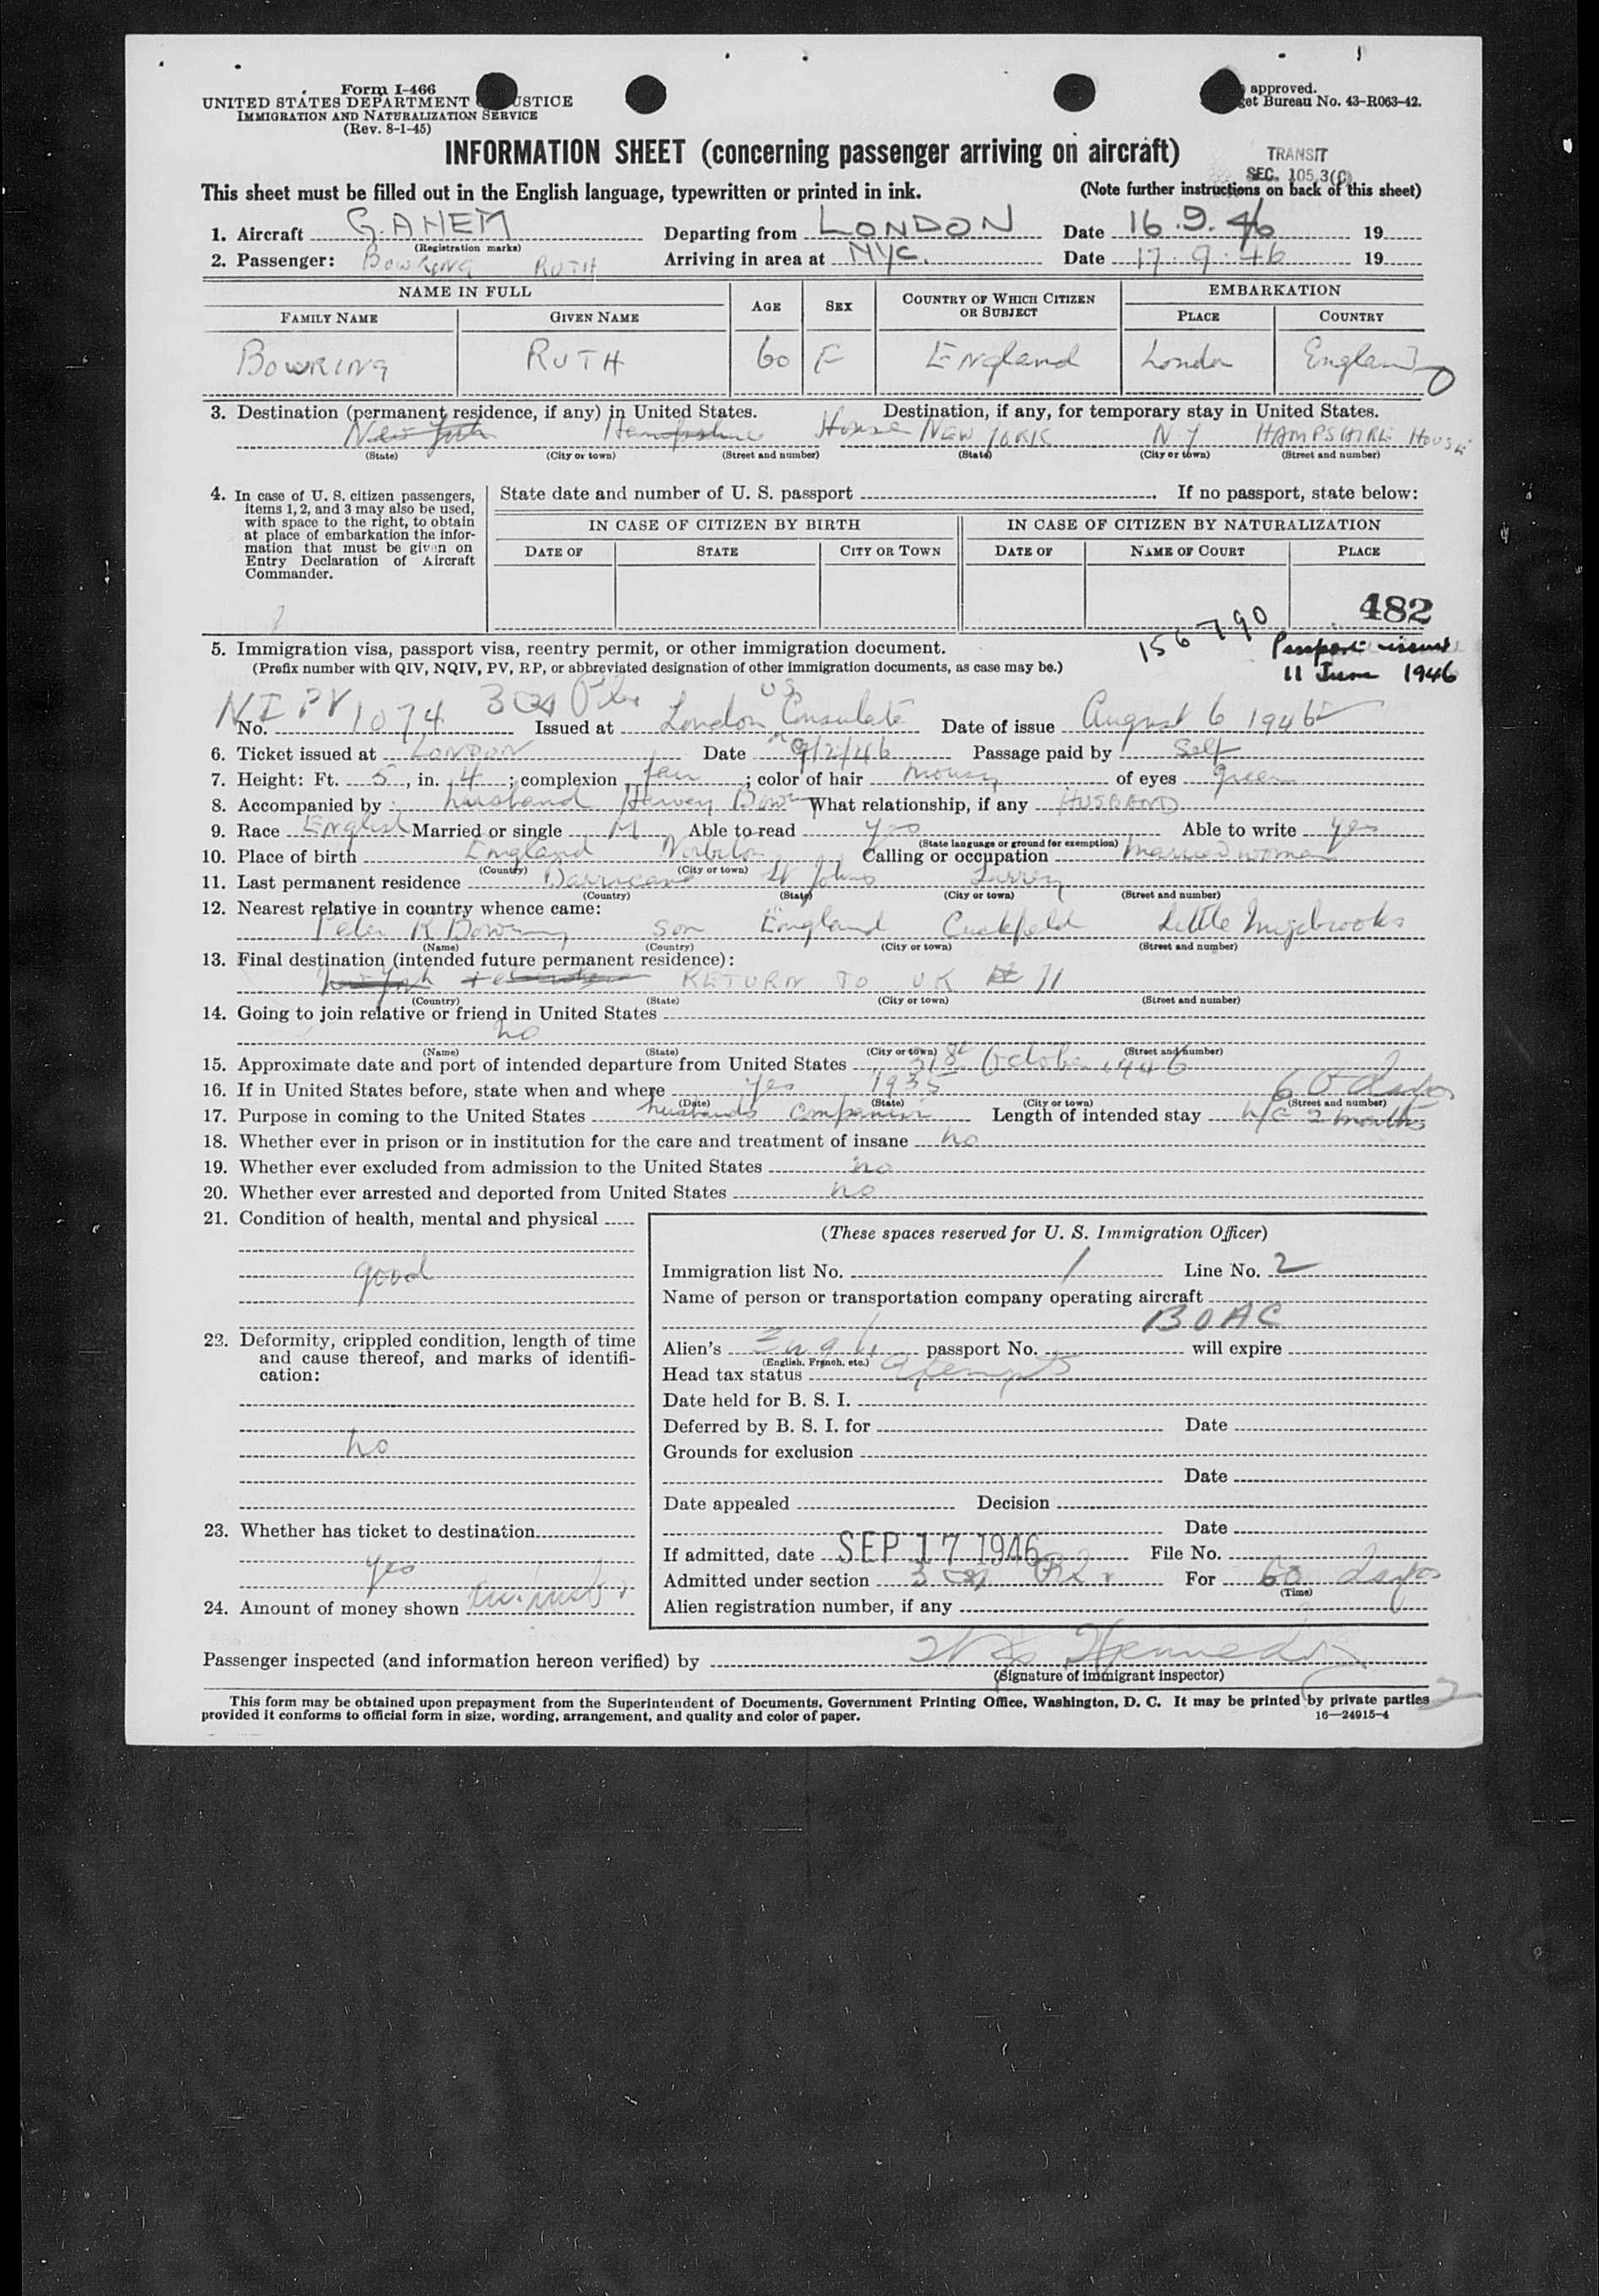 Form I-466
UNITED STATES DEPARTMENT JUSTICE
IMMIGRATION AND NATURALIZATION SERVICE
(Rev. 8-1-45)
approved.
get Bureau No. 43-R063-42.
INFORMATION SHEET (concerning passenger arriving on aircraft)
TRANSIT
SEC. 105.3(C)
This sheet must be filled out in the English language, typewritten or printed in ink. (Note further instructions on back of this sheet)
1. Aircraft G.AHEM Departing from LONDON Date 16.9.46 19
(Registration marks)
2. Passenger: BOWRING RUTH Arriving in area at NYC. Date 17.9.46 19
NAME IN FULL AGE SEX COUNTRY OF WHICH CITIZEN OR SUBJECT EMBARKATION
FAMILY NAME GIVEN NAME PLACE COUNTRY
BOWRING RUTH 60 F ENgland London England
3. Destination (permanent residence, if any) in United States. Destination, if any, for temporary stay in United States.
New York Hampshire House NEW YORK N Y HAMPSHIRE HOUSE
(State) (City or town) (Street and number) (State) (City or town) (Street and number)
4. In case of U. S. citizen passengers, items 1, 2, and 3 may also be used, with space to the right, to obtain at place of embarkation the information that must be given on Entry Declaration of Aircraft Commander.
State date and number of U. S. passport . If no passport, state below:
IN CASE OF CITIZEN BY BIRTH IN CASE OF CITIZEN BY NATURALIZATION
DATE OF STATE CITY OR TOWN DATE OF NAME OF COURT PLACE
482
156790 Passport issued
11 June 1946
5. Immigration visa, passport visa, reentry permit, or other immigration document.
(Prefix number with QIV, NQIV, PV, RP, or abbreviated designation of other immigration documents, as case may be.)
No. NI PV 1074 Issued at London US Consulate Date of issue August 6 1946
6. Ticket issued at LONDON Date 9/2/46 Passage paid by Self
7. Height: Ft. 5, in. 4; complexion fair; color of hair mousy of eyes green
8. Accompanied by husband Harvey Bowring What relationship, if any HUSBAND
9. Race English Married or single M Able to read yes Able to write yes
(State language or ground for exemption)
10. Place of birth England Norbiton, Calling or occupation married woman
(Country) (City or town)
11. Last permanent residence St Johns Surrey
(Country) (State) (City or town) (Street and number)
12. Nearest relative in country whence came:
Peter K Bowring son England Cuckfield Little
(Name) (Country) (City or town) (Street and number)
13. Final destination (intended future permanent residence):
New York RETURN TO UK
(Country) (State) (City or town) (Street and number)
14. Going to join relative or friend in United States
no
(Name) (State) (City or town) (Street and number)
15. Approximate date and port of intended departure from United States 31st October 1946
16. If in United States before, state when and where yes 1935
(Date) (State) (City or town) (Street and number)
60 days
17. Purpose in coming to the United States husbands companion Length of intended stay 2 months
18. Whether ever in prison or in institution for the care and treatment of insane no
19. Whether ever excluded from admission to the United States no
20. Whether ever arrested and deported from United States no
21. Condition of health, mental and physical
good
22. Deformity, crippled condition, length of time and cause thereof, and marks of identification:
no
23. Whether has ticket to destination
yes
24. Amount of money shown
(These spaces reserved for U. S. Immigration Officer)
Immigration list No. 1 Line No. 2
Name of person or transportation company operating aircraft
BOAC
Alien's Engl. passport No. will expire
(English, French, etc.)
Head tax status exempt
Date held for B. S. I.
Deferred by B. S. I. for Date
Grounds for exclusion
Date
Date appealed Decision
Date
If admitted, date SEP 17 1946 File No.
Admitted under section 3 For 60 days
(Time)
Alien registration number, if any
Passenger inspected (and information hereon verified) by
(Signature of immigrant inspector)
This form may be obtained upon prepayment from the Superintendent of Documents, Government Printing Office, Washington, D. C. It may be printed by private parties
provided it conforms to official form in size, wording, arrangement, and quality and color of paper. 16—24915-4